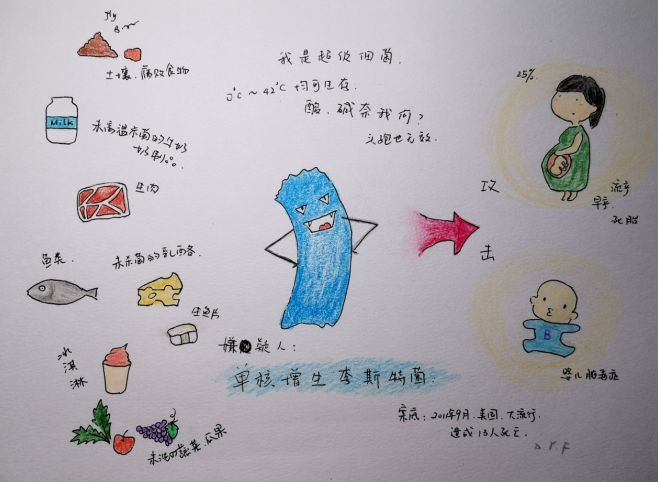 土壤、腐败食物
MiLK
未高温杀菌的牛奶
奶制品。
生肉
鱼类
未杀菌的乳酪
生鱼片
冰淇淋
未洗的蔬菜瓜果
我是超级细菌.
0℃~42℃ 均可生存.
酸、碱奈我何?
头孢也无效.
嫌疑人:
单核增生李斯特菌.
案底:2011年9月.美国.大流行.
造成13人死亡.
D.Y.F
攻
击
25%
流产
早产
死胎
B
婴儿脓毒症